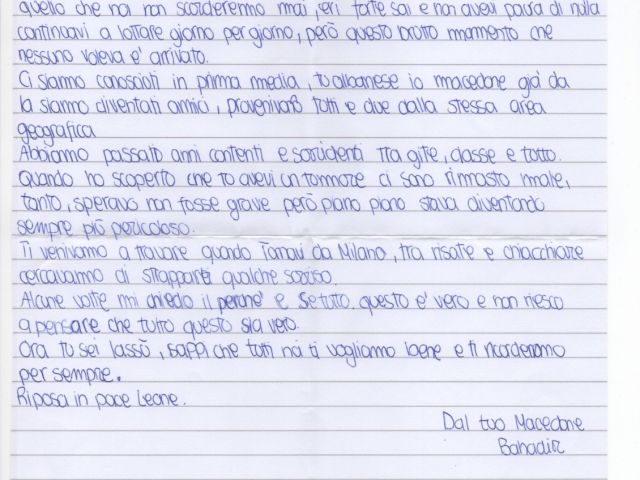 quello che noi non scorderemo mai, eri forte sai e non avevi paura di nulla
continuavi a lottare giorno per giorno, però questo brutto momento che
nessuno voleva e' arrivato.
Ci siamo conosciuti in prima media, tu albanese io macedone già da
la siamo diventati amici, provenivamo tutti e due dalla stessa area
geografica
Abbiamo passato anni contenti e sorridenti tra gite, classe e tutto.
Quando ho scoperto che tu avevi un tummore ci sono rimmasto mmale,
tanto, speravo non fosse grave però piano piano stava diventando
sempre più pericoloso.
Ti venivamo a trovare quando tornavi da Milano, tra risate e chiacchiere
cercavammo di strapparti qualche sorriso.
Alcune volte mi chiedo il perche' e se tutto questo e' vero e non riesco
a pensare che tutto questo sia vero.
Ora tu sei lassù, sappi che tutti noi ti vogliamo bene e ti ricorderemo
per sempre.
Riposa in pace Leone.
Dal tuo Macedone
Bahadir